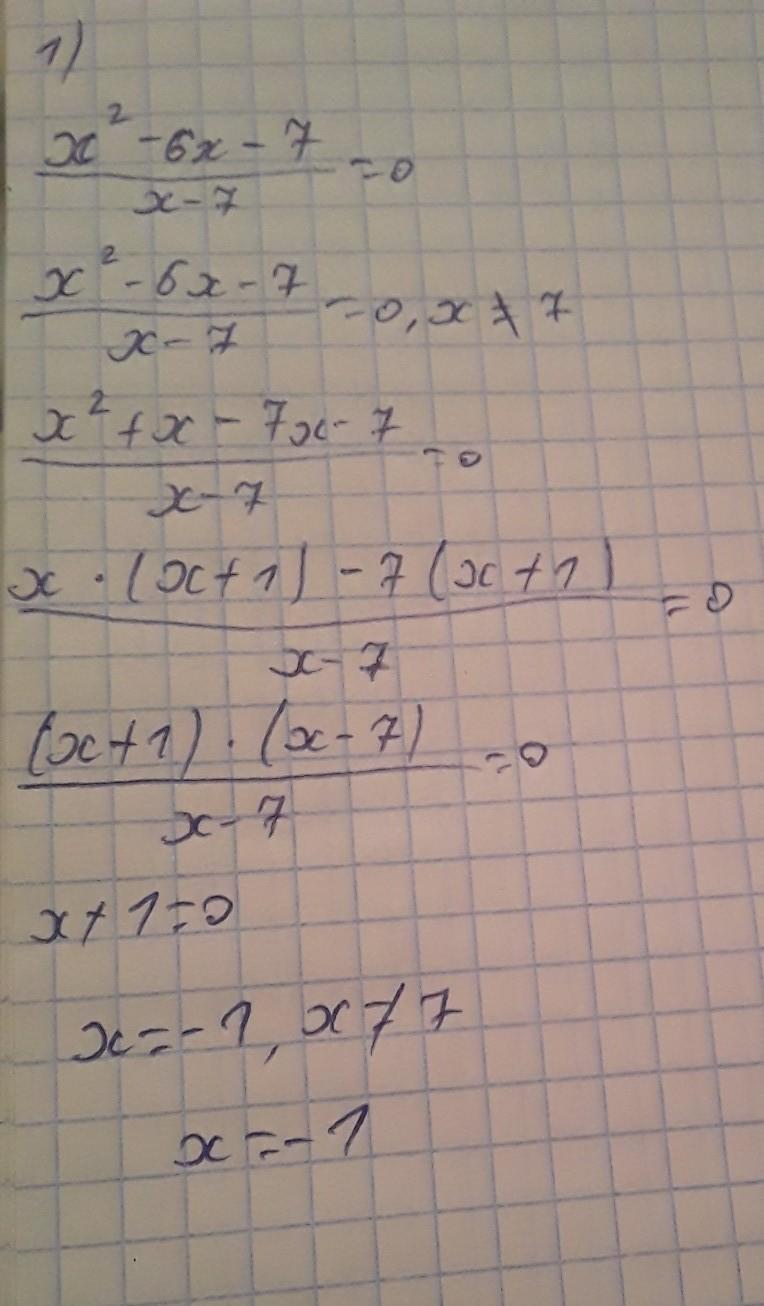 1)
x² - 6x - 7 / x - 7 = 0
x² - 6x - 7 / x - 7 = 0, x ≠ 7
x² + x - 7x - 7 / x - 7 = 0
x · (x + 1) - 7 (x + 1) / x - 7 = 0
(x + 1) · (x - 7) / x - 7 = 0
x + 1 = 0
x = - 1, x ≠ 7
x = - 1